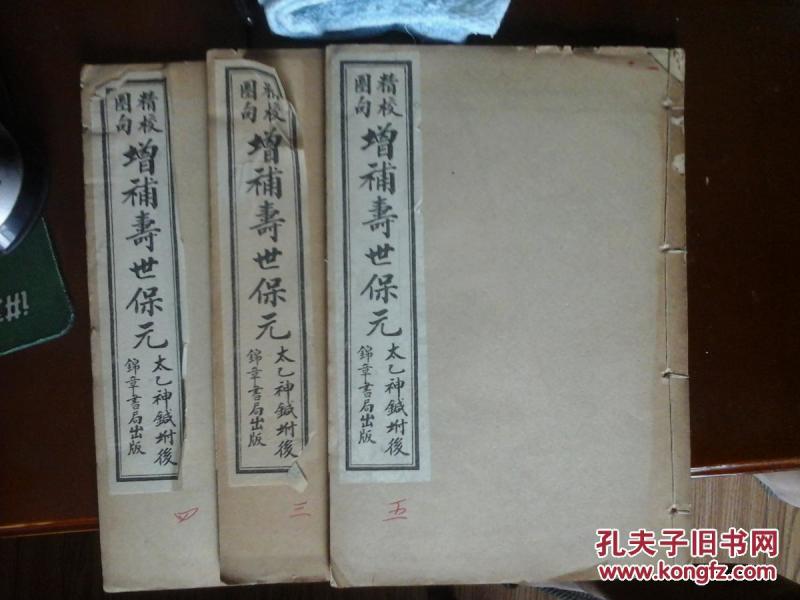 精校
圈句
增補壽世保元
太乙神鍼坿後
錦章書局出版
五
精校
圈句
增補壽世保元
太乙神鍼坿後
錦章書局出版
三
精校
圈句
增補壽世保元
太乙神鍼坿後
錦章書局出版
四
讲
孔夫子旧书网
www.kongfz.com